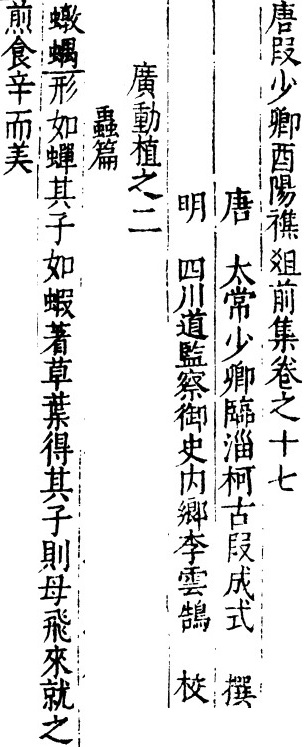 唐段少卿酉陽襍俎前集卷之十七
唐 太常少卿臨淄柯古段成式 撰
明 四川道監察御史内鄉李雲鵠 校
廣動植之二
蟲篇
蠍蝺形如蟬其子如蝦著草葉得其子則母飛來就之
煎食辛而美